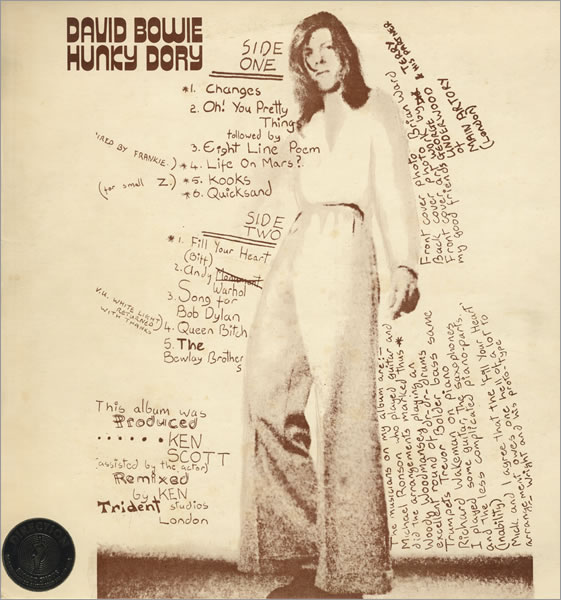 DAVID BOWIE
HUNKY DORY
SIDE
ONE
*1. Changes
2. Oh! You Pretty
Things
followed by
3. Eight Line Poem
IRED BY FRANKIE.) *4. Life On Mars?
(for small Z.) *5. Kooks
*6. Quicksand
SIDE
TWO
*1. Fill Your Heart
(Biff)
2. Andy
Warhol
3. Song for
Bob Dylan
V.U. WHITE LIGHT
RETURNED
WITH THANKS) 4. Queen Bitch
5. The
Bewlay Brothers
This album was
Produced
...... KEN
SCOTT
(assisted by the actor)
Remixed
by KEN
Trident studios
London
Front cover photo Brian Ward
Back cover photo by
Front cover and GEORGE & his PARTNER
my good friends UNDERWOOD TERRY
of MAIN ARTORY
(London)
The musicians on my album are:-
Michael Ronson who played guitar and
did the arrangements marked thus *
Woody Woodmansey playing an
excellent round of dr-dr-drums
Trumpets Trevor Bolder bass same
Richard Wakeman on piano
I played some guitar, the saxophones
and the less complicated piano-parts.
(inability)
Mick and I agree that the 'Fill Your Heart'
arrangement owes one hell of a lot to
Wright and his prototype